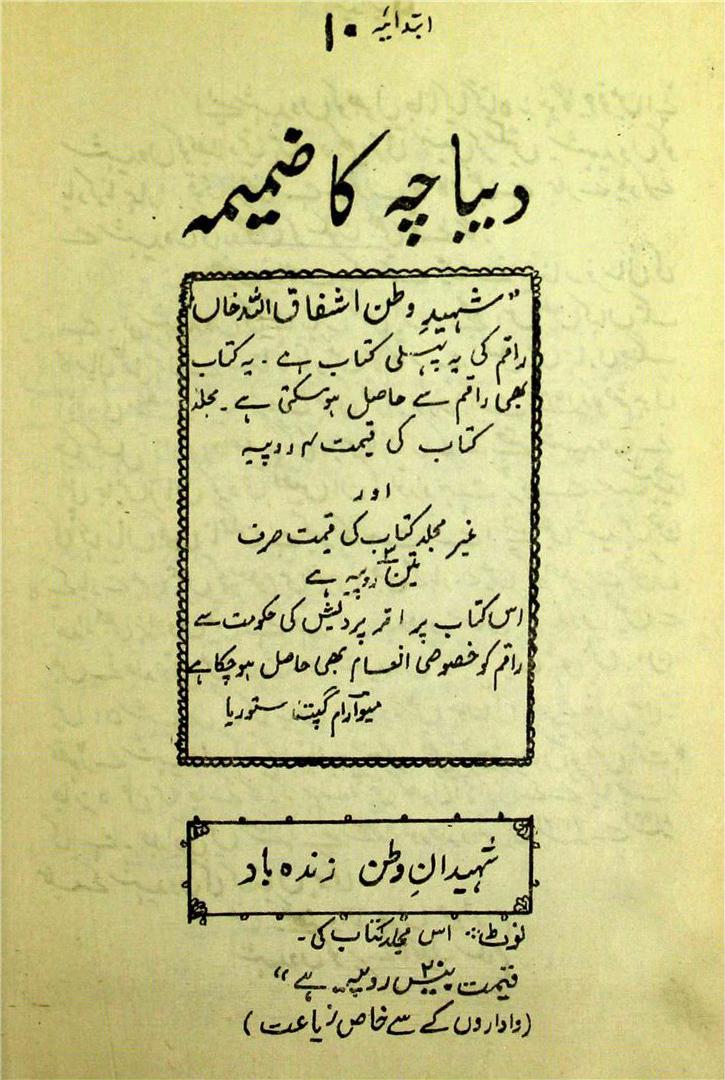 ابتدائیہ ۱۰
دیباچہ کا ضمیمہ
"شہیدِ وطن اشفاق اللہ خاں
راقم کی یہ پہلی کتاب ہے ۔ یہ کتاب
بھی راقم سے حاصل ہوسکتی ہے ۔ مجلد
کتاب کی قیمت ۴ روپیہ
اور
غیر مجلد کتاب کی قیمت صرف
تین ۳ روپیہ ہے
اس کتاب پر اتر پردیش کی حکومت سے
راقم کو خصوصی انعام بھی حاصل ہوچکا ہے
میوارام گپت ستوریا
شہیدانِ وطن زندہ باد
نوٹ :: اس مجلد کتاب کی ۔
قیمت بیس ۲۰ روپیہ ہے "
(واداروں کے سے خاص زیاعت)